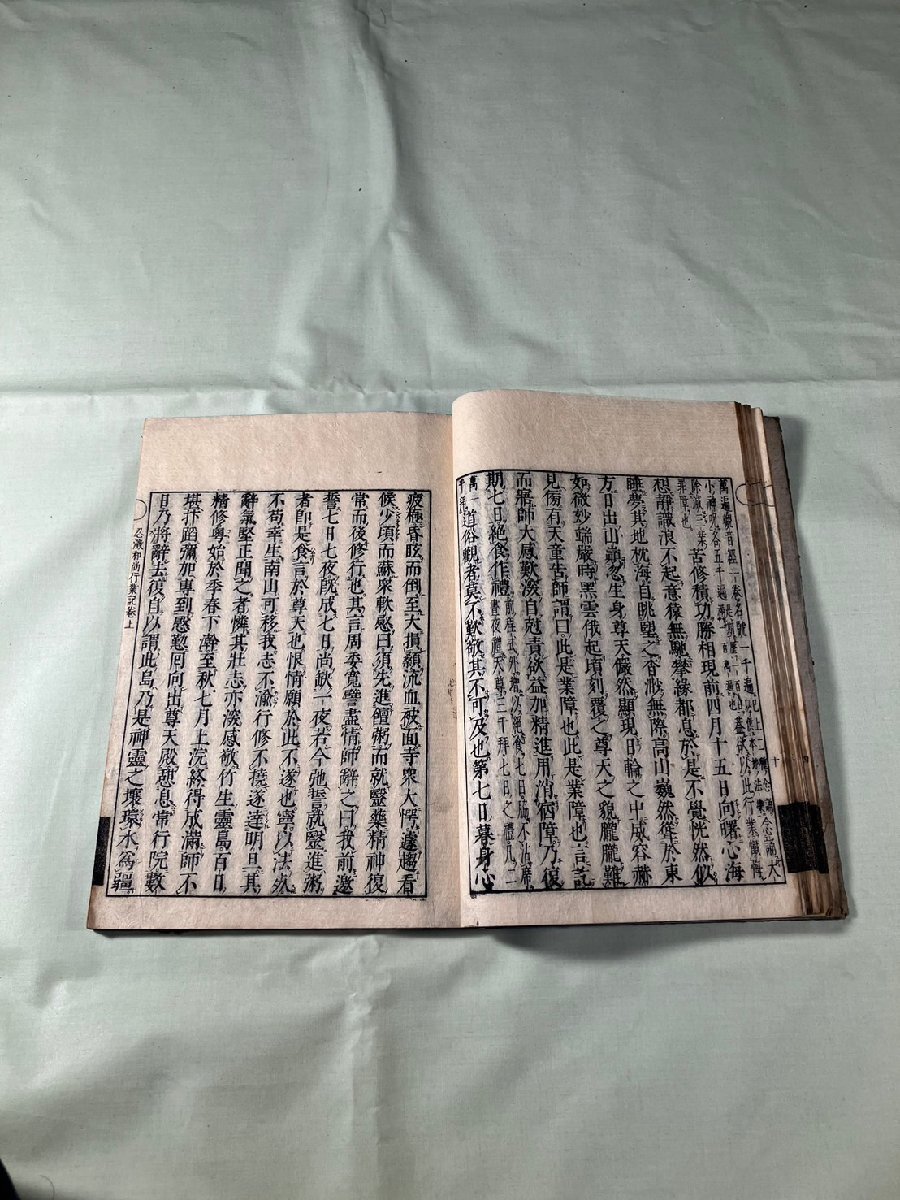 苦修積功勝相現前四月十五日向曙心海
想靜識浪不起意猿無馳攀緣都息於是不覺恍然似
睡夢其地枕海自眺望之杳渺無際高山巍然聳於東
方日出山頭忽生身尊天儼然顯現日輪之中威容赫
如微妙端嚴時黑雲俄起頃刻覆之尊天之貌朦朧難
見傍有天童告師謂曰此是業障也此是業障也言訖
而寤師大感歎深自剋責欲益加精進用消宿障乃復
期七日絕食作禮
道俗觀者莫不歎敬其不可及也第七日暮身心
疲極昏眩而倒至大損額流血被面寺眾大愕遽趨看
候少頃而蘇眾軟慰曰須先進饘粥而就醫藥精神復
常而後修行也其言周委寬譬盡情師辭之曰我前邀
誓七日七夜既成七日尚歉一夜若今弛誓就醫進粥
者即是食言於尊天也恨情願於此不遂也寧以法死
不苟幸生南山可移我志不渝行修不撓遂達明旦其
辭氣堅正聞之者憐其壯志亦深感歎竹生靈島百日
精修粤始於季春下澣至秋七月上浣終得成滿師不
堪抃蹈彌加專到慇懃回向出尊天殿憩息常行院數
日乃將辭去復自以謂此島乃是神靈之壤環水爲疆
忍澂和尚行業記卷上